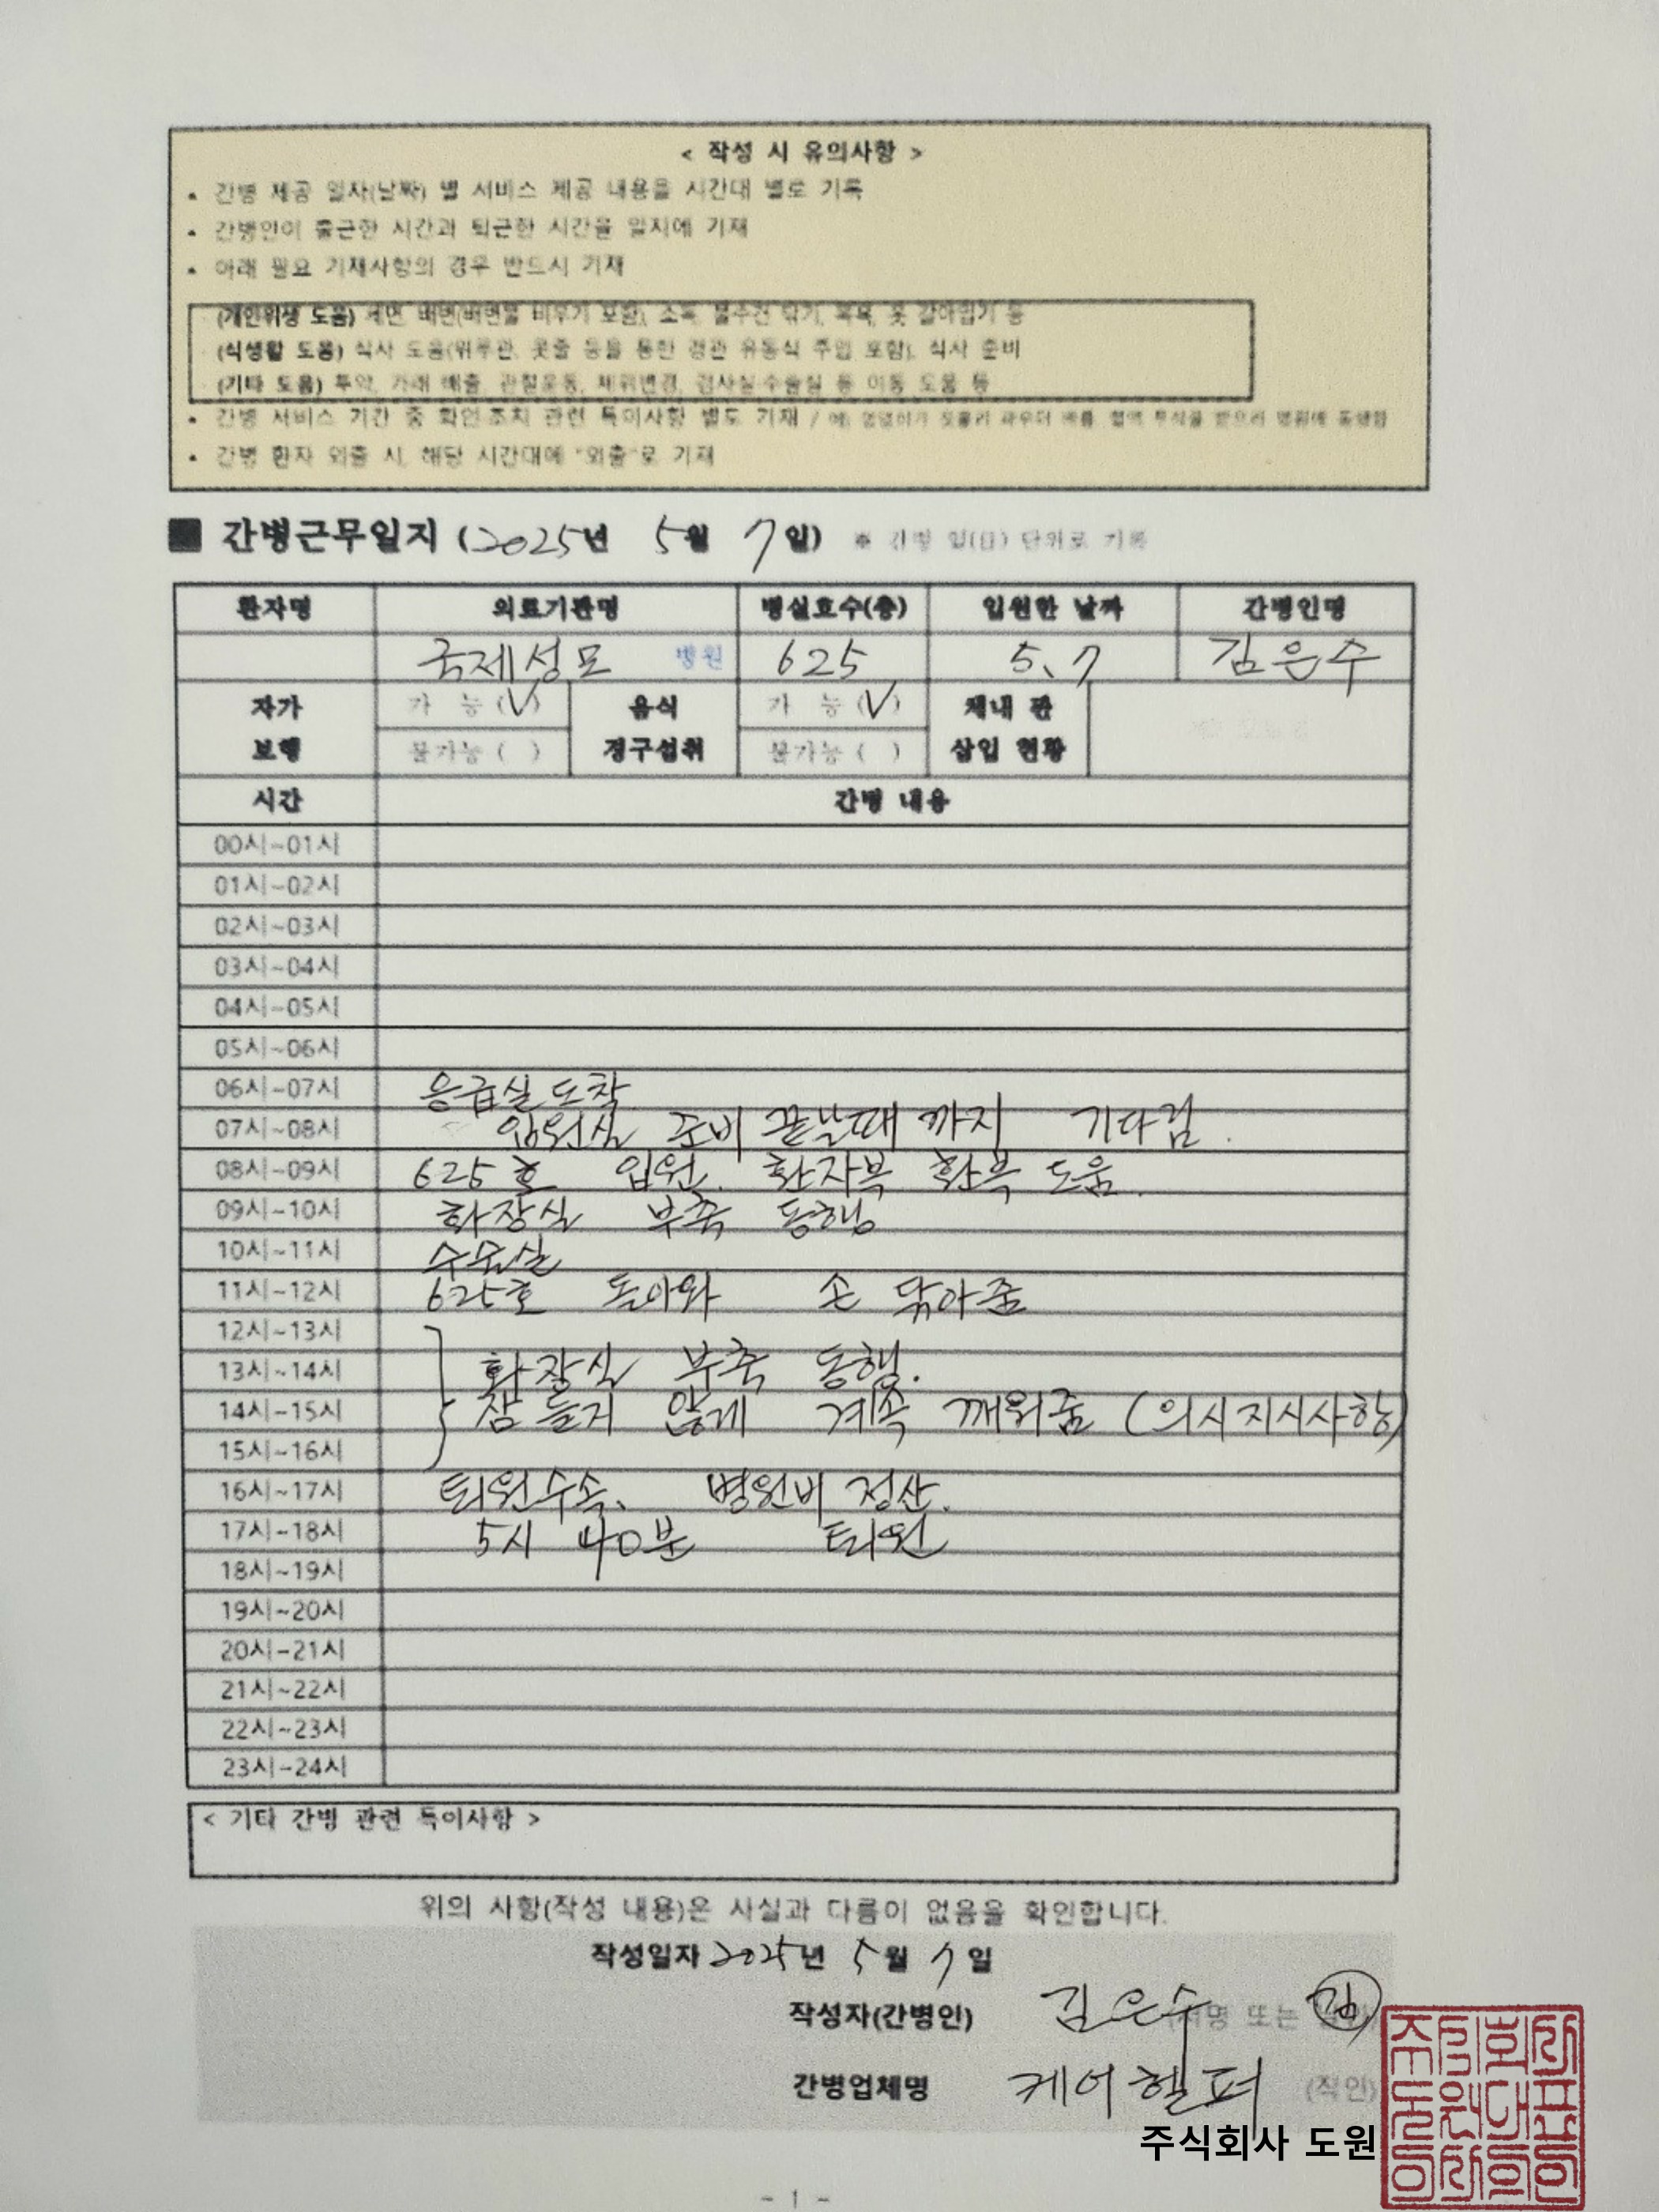 < 작성 시 유의사항 >
• 간병 제공 일자(날짜) 별 서비스 제공 내용을 시간대 별로 기록
• 간병인이 출근한 시간과 퇴근한 시간을 일지에 기재
• 아래 필요 기재사항의 경우 반드시 기재
(개인위생 도움) 세면, 배변(배변물 비우기 포함), 소독, 물수건 닦기, 목욕, 옷 갈아입기 등
(식생활 도움) 식사 도움(위루관, 콧줄 등을 통한 경관 유동식 주입 포함), 식사 준비
(기타 도움) 투약, 가래 배출, 관절운동, 체위변경, 검사실·수술실 등 이동 도움 등
• 간병 서비스 기간 중 확인·조치 관련 특이사항 별도 기재 / 예)
• 간병 환자 외출 시, 해당 시간대에 "외출"로 기재
■ 간병근무일지 (2025년 5월 7일) ※ 간병 일(日) 단위로 기록
환자명 의료기관명 병실호수(층) 입원한 날짜 간병인명
국제성모 병원 625 5.7 김은수
자가 보행 가 능 (V) 불가능 ( ) 음식 경구섭취 가 능 (V) 불가능 ( ) 체내 관 삽입 현황
시간 간병 내용
00시~01시
01시~02시
02시~03시
03시~04시
04시~05시
05시~06시
06시~07시 응급실 도착
07시~08시 입원실 준비 끝날때 까지 기다림.
08시~09시 625호 입원. 환자복 환복 도움.
09시~10시 화장실 부축 동행
10시~11시 수술실
11시~12시 625호 돌아와 손 닦아줌
12시~13시
13시~14시 화장실 부축 동행.
14시~15시 잠 들지 않게 계속 깨워줌 (의사지시사항)
15시~16시
16시~17시 퇴원수속. 병원비 정산.
17시~18시 5시 40분 퇴원
18시~19시
19시~20시
20시~21시
21시~22시
22시~23시
23시~24시
< 기타 간병 관련 특이사항 >
위의 사항(작성 내용)은 사실과 다름이 없음을 확인합니다.
작성일자 2025년 5월 7일
작성자(간병인) 김은수 (서명 또는 김
간병업체명 케어헬퍼 (직인)
주식회사 도원
- 1 -